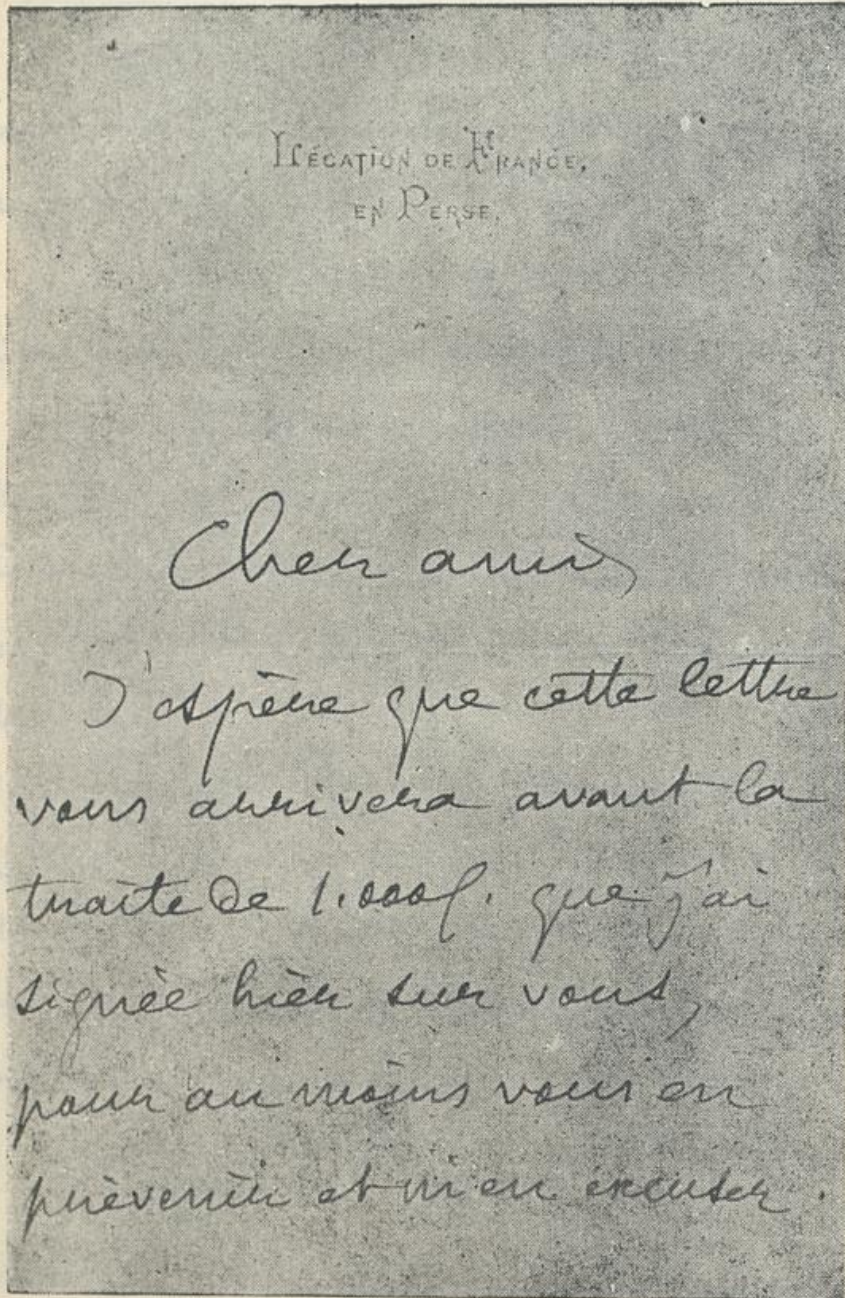 LÉGATION DE FRANCE,
EN PERSE.
Cher ami,
J'espère que cette lettre
vous arrivera avant la
traite de 1.000 f. que j'ai
signée hier sur vous,
pour au moins vous en
prévenir et m'en excuser.